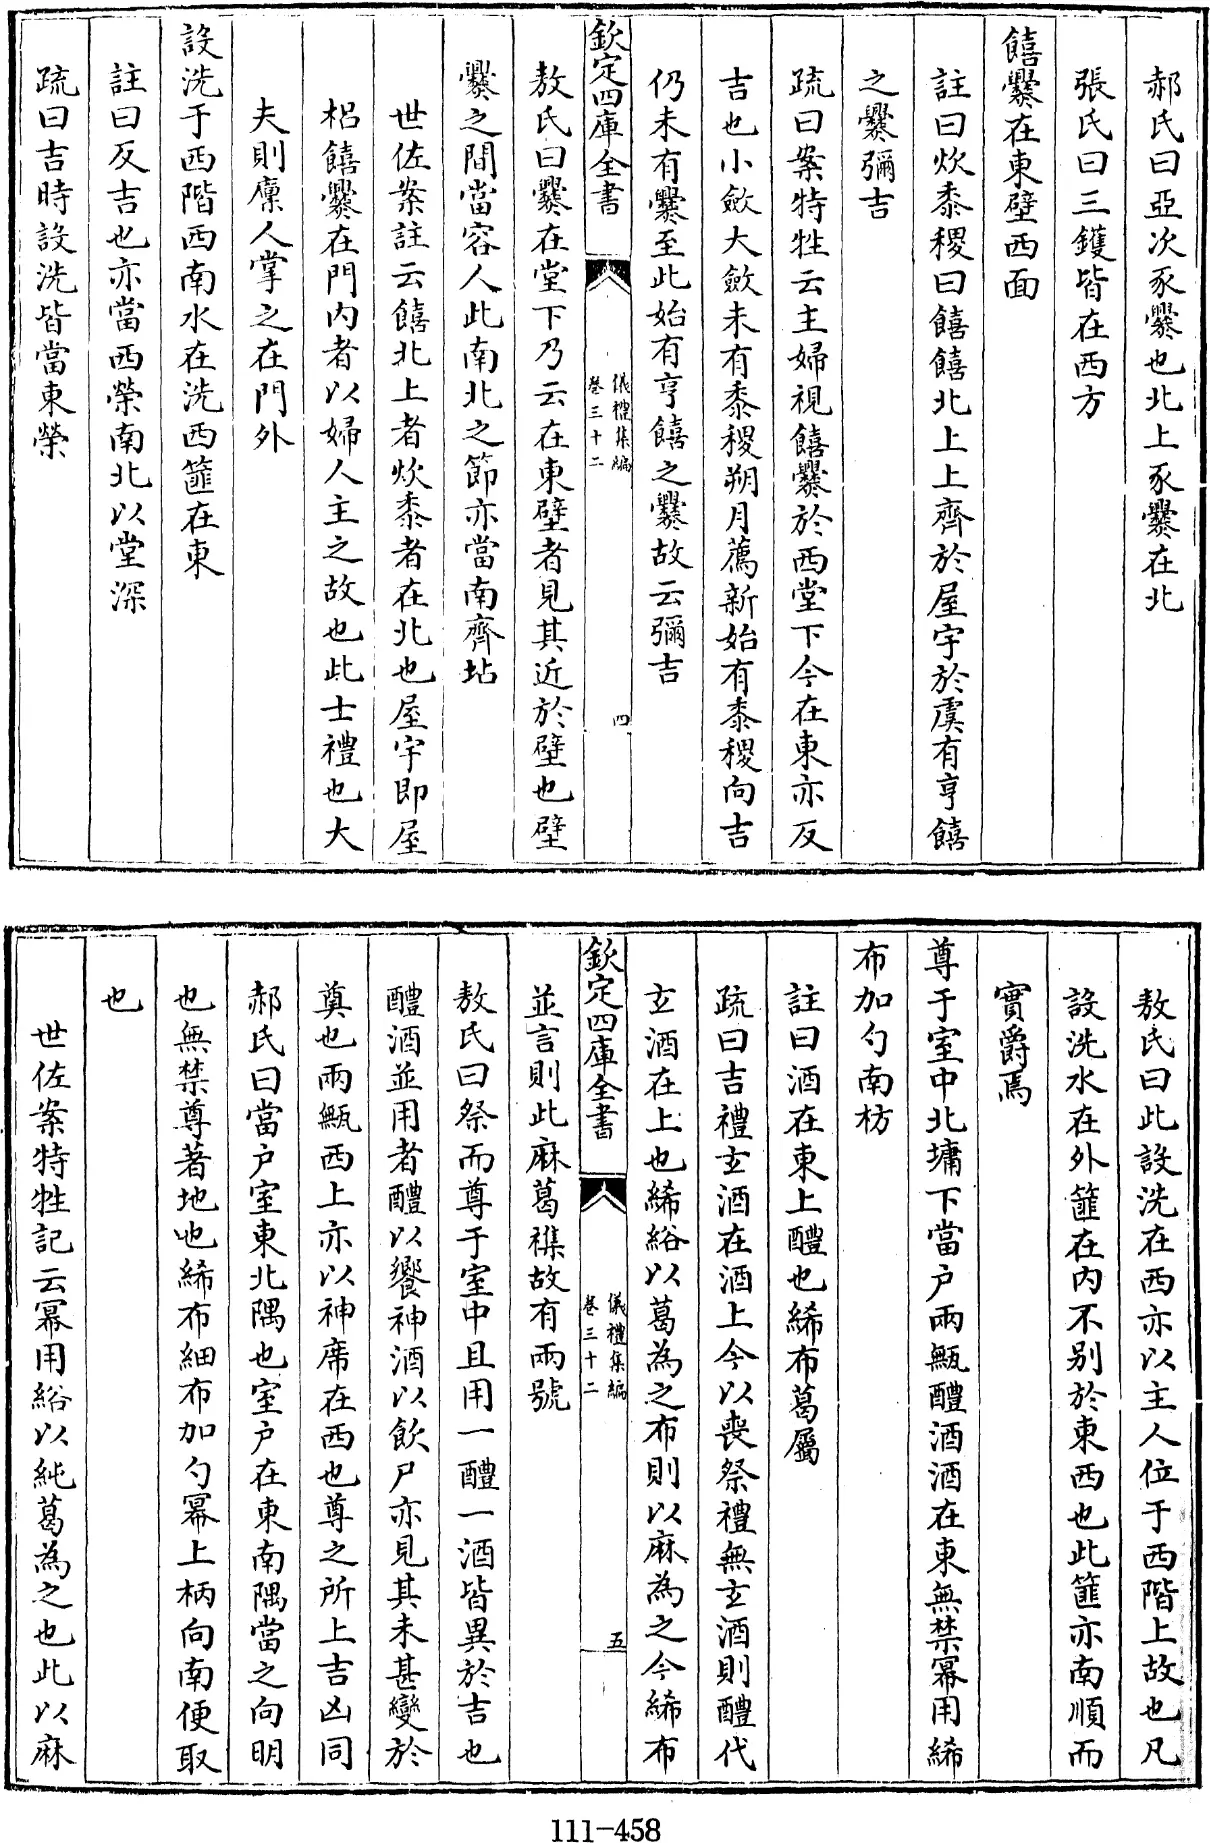 郝氏曰亞次豕爨也北上豕爨在北
張氏曰三鑊皆在西方
饎爨在東壁西面
註曰炊黍稷曰饎饎北上上齊於屋宇於虞有亨饎
之爨彌吉
疏曰案特牲云主婦視饎爨於西堂下今在東亦反
吉也小斂大斂未有黍稷朔月薦新始有黍稷向吉
仍未有爨至此始有亨饎之爨故云彌吉
欽定四庫全書
儀禮集編
卷三十二
四
敖氏曰爨在堂下乃云在東壁者見其近於壁也壁
爨之間當容人此南北之節亦當南齊坫
世佐案註云饎北上者炊黍者在北也屋宇即屋
梠饎爨在門內者以婦人主之故也此士禮也大
夫則廩人掌之在門外
設洗于西階西南水在洗西篚在東
註曰反吉也亦當西榮南北以堂深
疏曰吉時設洗皆當東榮
敖氏曰此設洗在西亦以主人位于西階上故也凡
設洗水在外篚在內不別於東西也此篚亦南順而
實爵焉
尊于室中北墉下當户兩甒醴酒酒在東無禁冪用絺
布加勺南枋
註曰酒在東上醴也絺布葛屬
疏曰吉禮玄酒在酒上今以喪祭禮無玄酒則醴代
玄酒在上也絺綌以葛為之布則以麻為之今絺布
欽定四庫全書
儀禮集編
卷三十二
五
並言則此麻葛襍故有兩號
敖氏曰祭而尊于室中且用一醴一酒皆異於吉也
醴酒並用者醴以饗神酒以飲尸亦見其未甚變於
奠也兩甒西上亦以神席在西也尊之所上吉凶同
郝氏曰當户室東北隅也室户在東南隅當之向明
也無禁尊著地也絺布細布加勺冪上柄向南便取
也
世佐案特牲記云冪用綌以純葛為之也此以麻
111-458